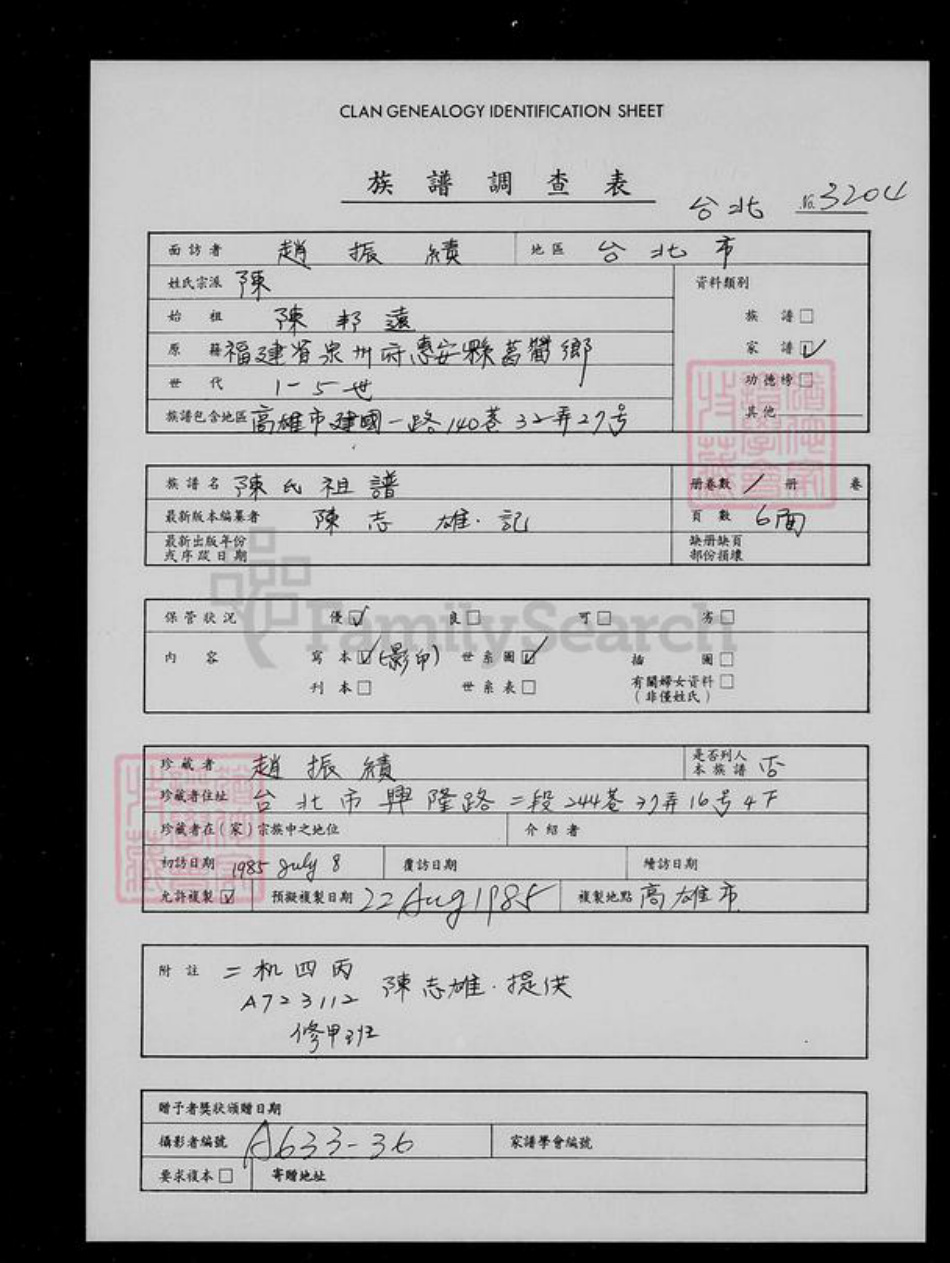 CLAN GENEALOGY IDENTIFICATION SHEET
族譜調查表
台北 No. 3204
面訪者 趙振績 地區 台北市
姓氏宗派 陳 資料類別
始祖 陳邦遠 族譜☐
原籍 福建省泉州府惠安縣 鄉 家譜☑
世代 1-5世 功德榜☐
族譜包含地區 高雄市建國一路140巷32弄27号 其他
族譜名 陳氏祖譜 冊卷數 1 冊 卷
最新版本編纂者 陳志雄.記 頁數 6面
最新出版年份或序跋日期 缺冊缺頁部份損壞
保管狀況 優☑ 良☐ 可☐ 劣☐
內容 寫本☑(影印) 世系圖☑ 插圖☐
刊本☐ 世系表☐ 有關婦女資料☐
(非僅姓氏)
FamilySearch
珍藏者 趙振績 是否列入本族譜 否
珍藏者住址 台北市興隆路二段244巷37弄16号4F
珍藏者在(家)宗族中之地位 介紹者
初訪日期 1985 July 8 覆訪日期 續訪日期
允許複製☑ 預擬複製日期 22 Aug 1985 複製地點 高雄市
附註 二机四丙 陳志雄.提供
A723112
修甲班
贈予者獎狀頒贈日期
攝影者編號 A633-36 家譜學會編號
要求複本☐ 寄贈地址